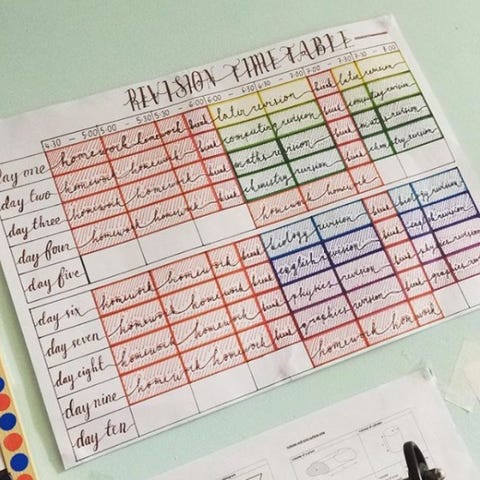 REVISION TIMETABLE
4:30 - 5:00 5:00 - 5:30 5:30 - 6:00 6:00 - 6:30 6:30 - 7:00 7:00 - 7:30 7:30 - 8:00
day one homework homework break latin revision break latin revision
day two homework homework break computing revision break computing revision
day three homework homework break maths revision break maths revision
day four homework homework break chemistry revision break chemistry revision
day five homework homework
day six homework homework break biology revision break biology revision
day seven homework homework break english revision break english revision
day eight homework homework break physics revision break physics revision
day nine homework homework break graphics revision break graphics revision
day ten homework homework